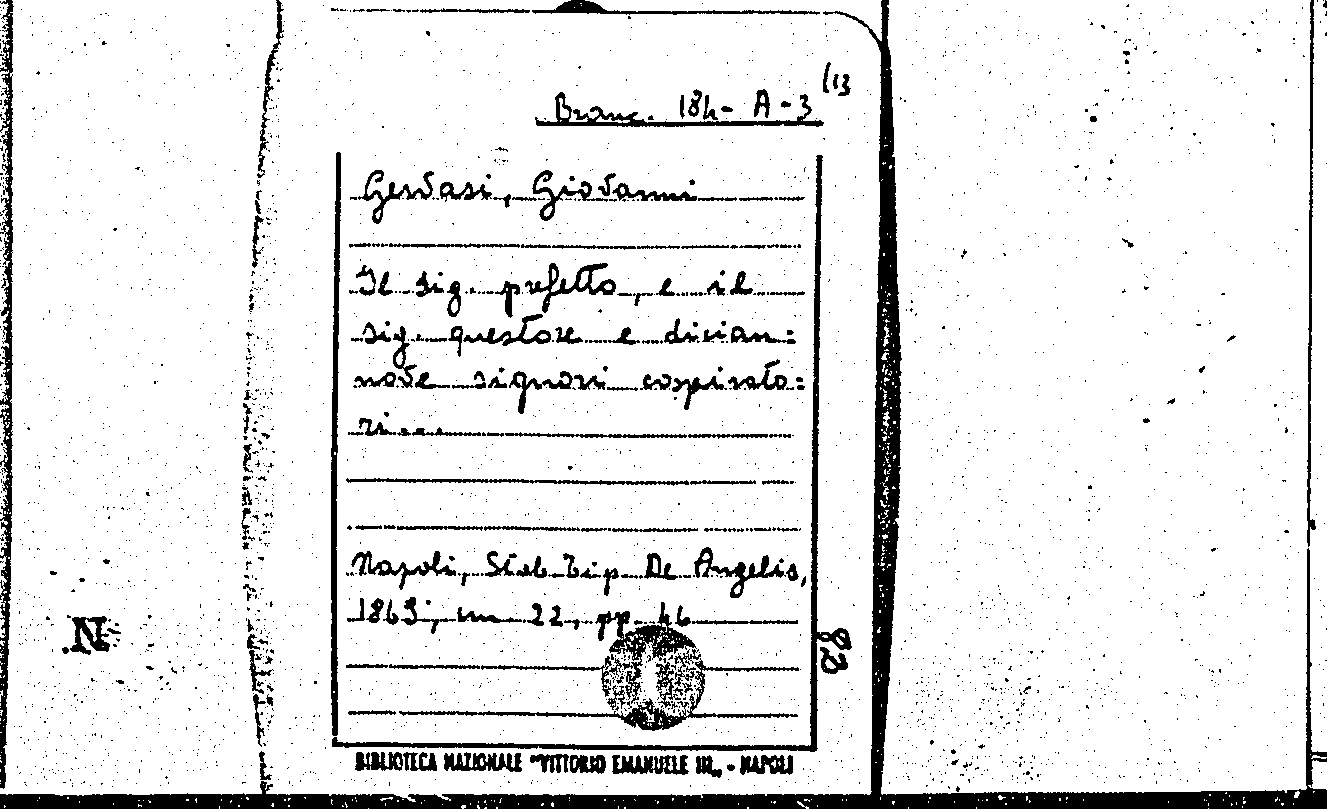 (13
Branc. 184- A-3
Gervasi, Giovanni
Il sig. prefetto, e il
sig. questore e dician=
nove signori cospirato=
ri...
Napoli, Stab Tip De Angelis,
1869; cm 22, pp. 46
82
N.
BIBLIOTECA NAZIONALE "VITTORIO EMANUELE III„ - NAPOLI